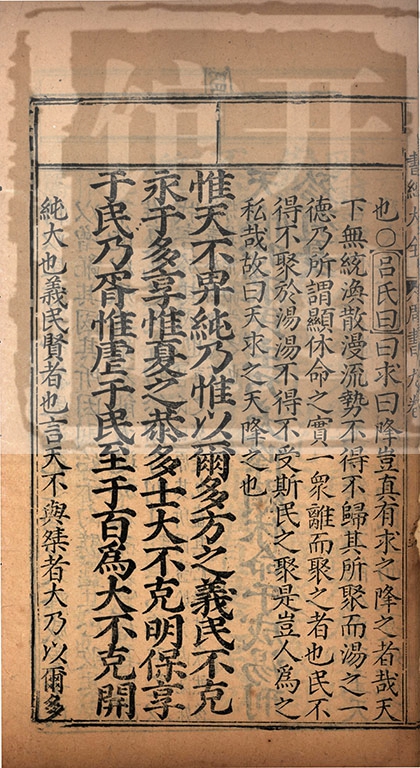 也○呂氏曰曰求曰降豈真有求之降之者哉天
下無統渙散漫流勢不得不歸其所聚而湯之一
德乃所謂顯休命之實一衆離而聚之者也民不
得不聚於湯湯不得不受斯民之聚是豈人爲之
私哉故曰天求之天降之也
惟天不畀純乃惟以爾多方之義民不克
永于多享惟夏之恭多士大不克明保享
于民乃胥惟虐于民至于百爲大不克開
純大也義民賢者也言天不與桀者大乃以爾多